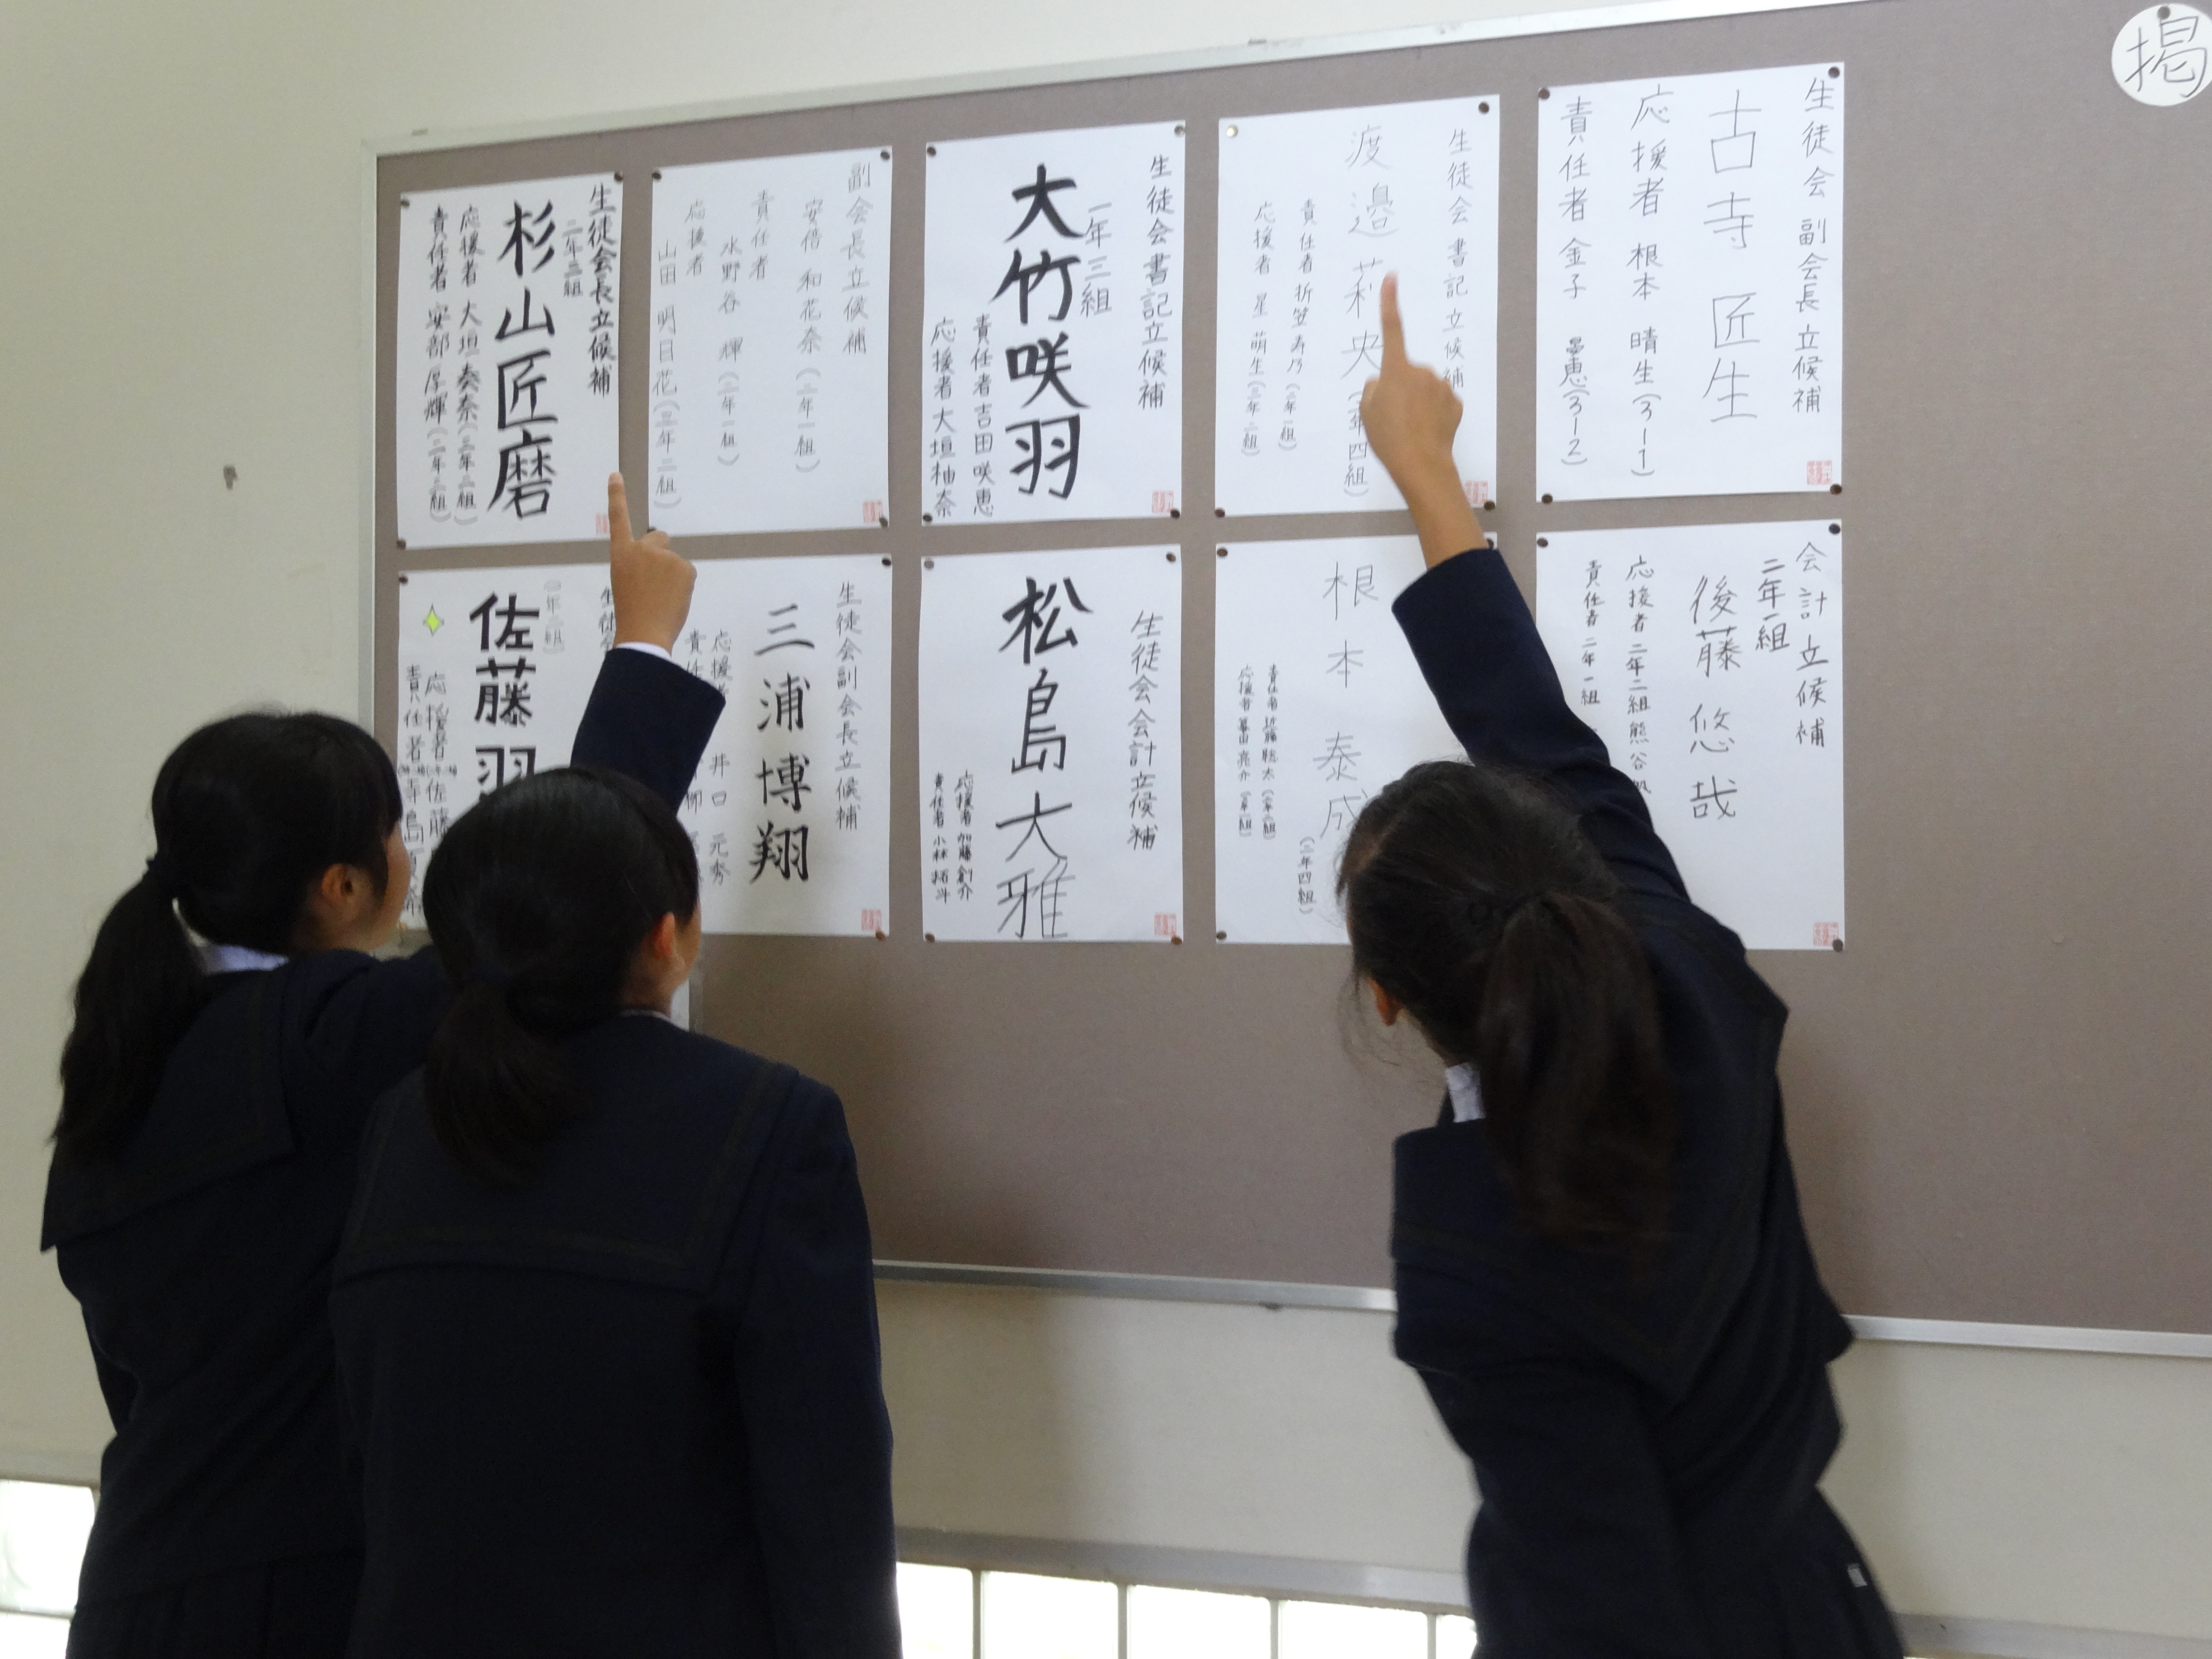 掲
生徒会 副会長 立候補
古寺 匠生
応援者 根本 晴生(3-1)
責任者 金子
生徒会 書記 立候補
渡邉 莉央
責任者 折笠 寿乃(二年一組)
応援者 星 萌生(三年二組)
生徒会書記立候補
一年三組
大竹咲羽
責任者 吉田咲恵
応援者 大垣柚奈
副会長立候補
安倍 和花奈(二年一組)
責任者
水野谷 輝(二年一組)
応援者
山田 明日花(三年二組)
生徒会長立候補
二年三組
杉山匠磨
応援者 大垣奏奈(三年二組)
責任者 安部厚輝(二年三組)
会計立候補
二年一組
後藤 悠哉
応援者 二年二組 熊谷
責任者 二年一組
根本 泰成
(二年四組)
責任者 近藤聡太
応援者
生徒会会計立候補
松島大雅
応援者 加藤創介
責任者 小林拓斗
生徒会副会長立候補
三浦博翔
井口 元秀
佐藤
応援者 佐藤
責任者 寺島